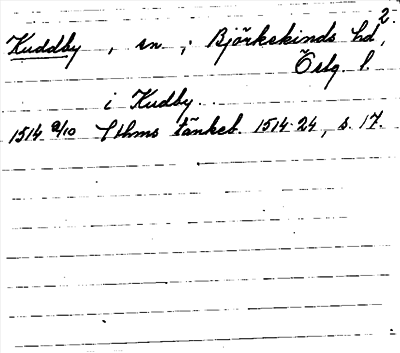 2.
Kuddby, sn. ; Björkekinds hd,
Östg. l.
i Kudby..
1514 9/10 Sthms tänkeb. 1514-24, s. 17.